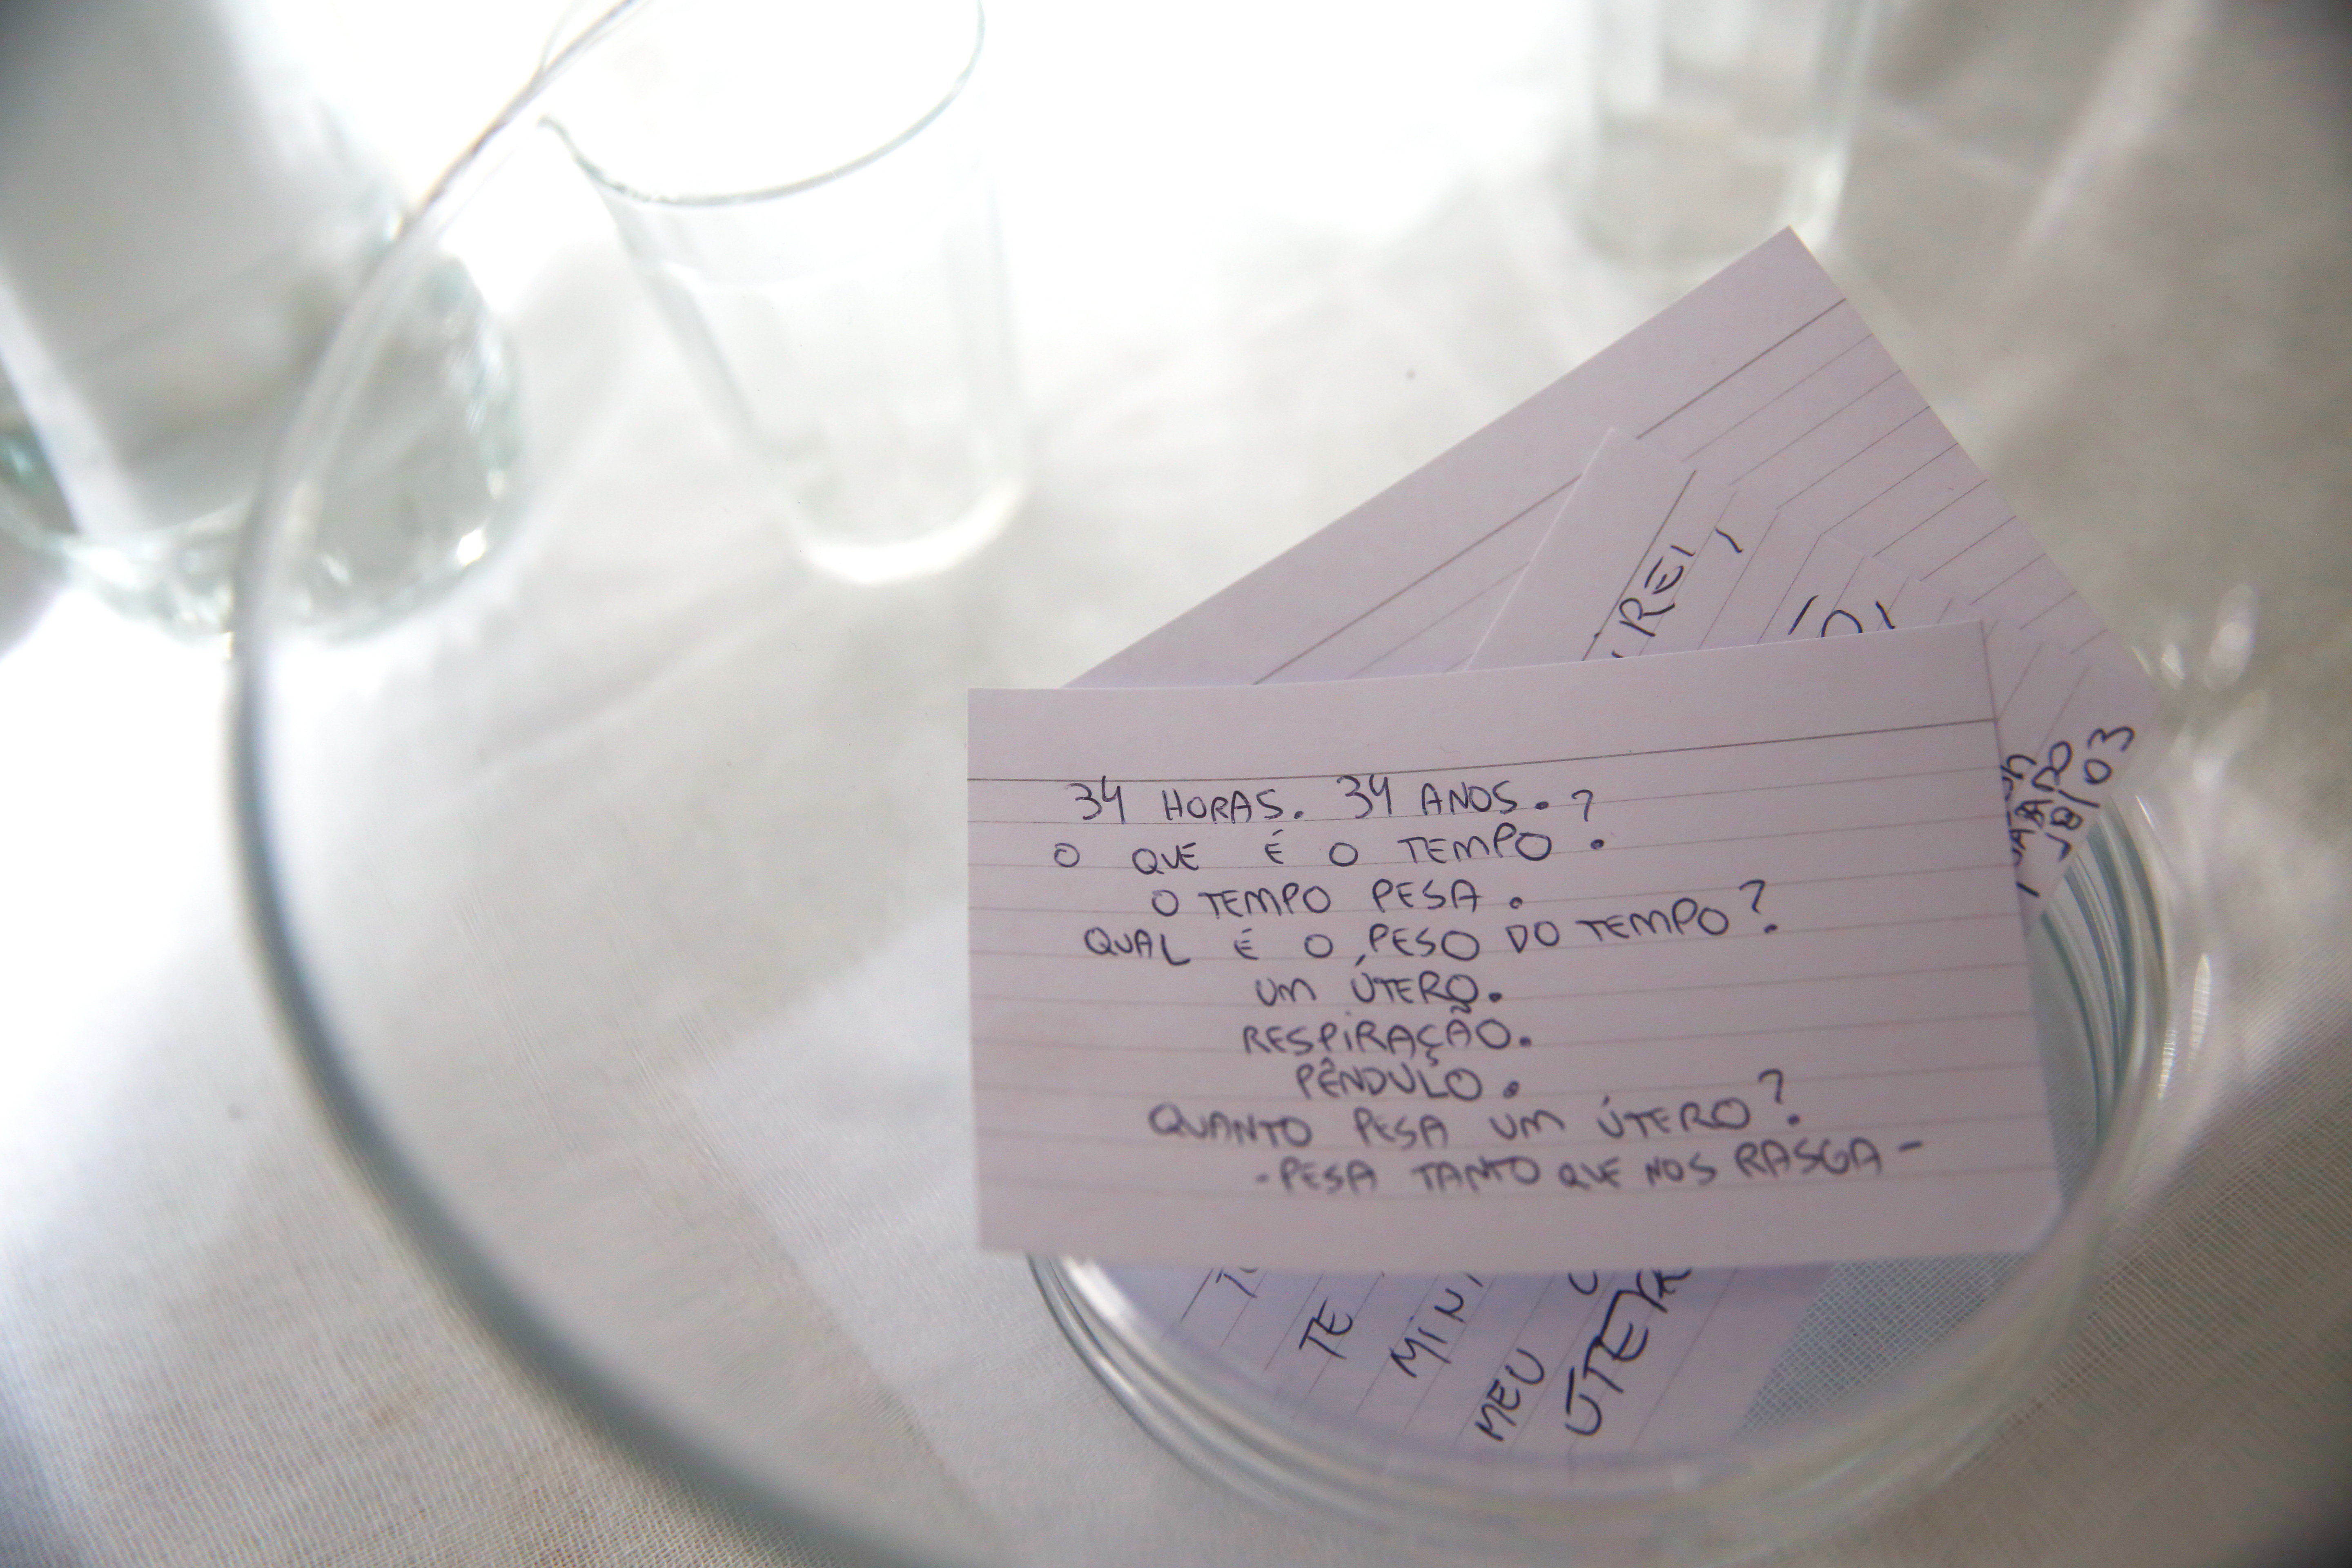 34 HORAS. 34 ANOS.
O QUE É O TEMPO?
O TEMPO PESA.
QUAL É O PESO DO TEMPO?
UM ÚTERO.
RESPIRAÇÃO.
PÊNDULO.
QUANTO PESA UM ÚTERO?
-PESA TANTO QUE NOS RASGA-
REI,
18/03
TE
MEU